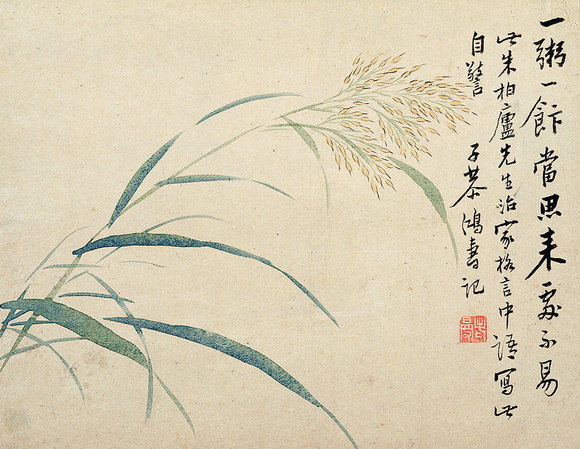 一粥一飰當思来處不易
此朱柏廬先生治家格言中語寫此
自警 子恭鴻書記